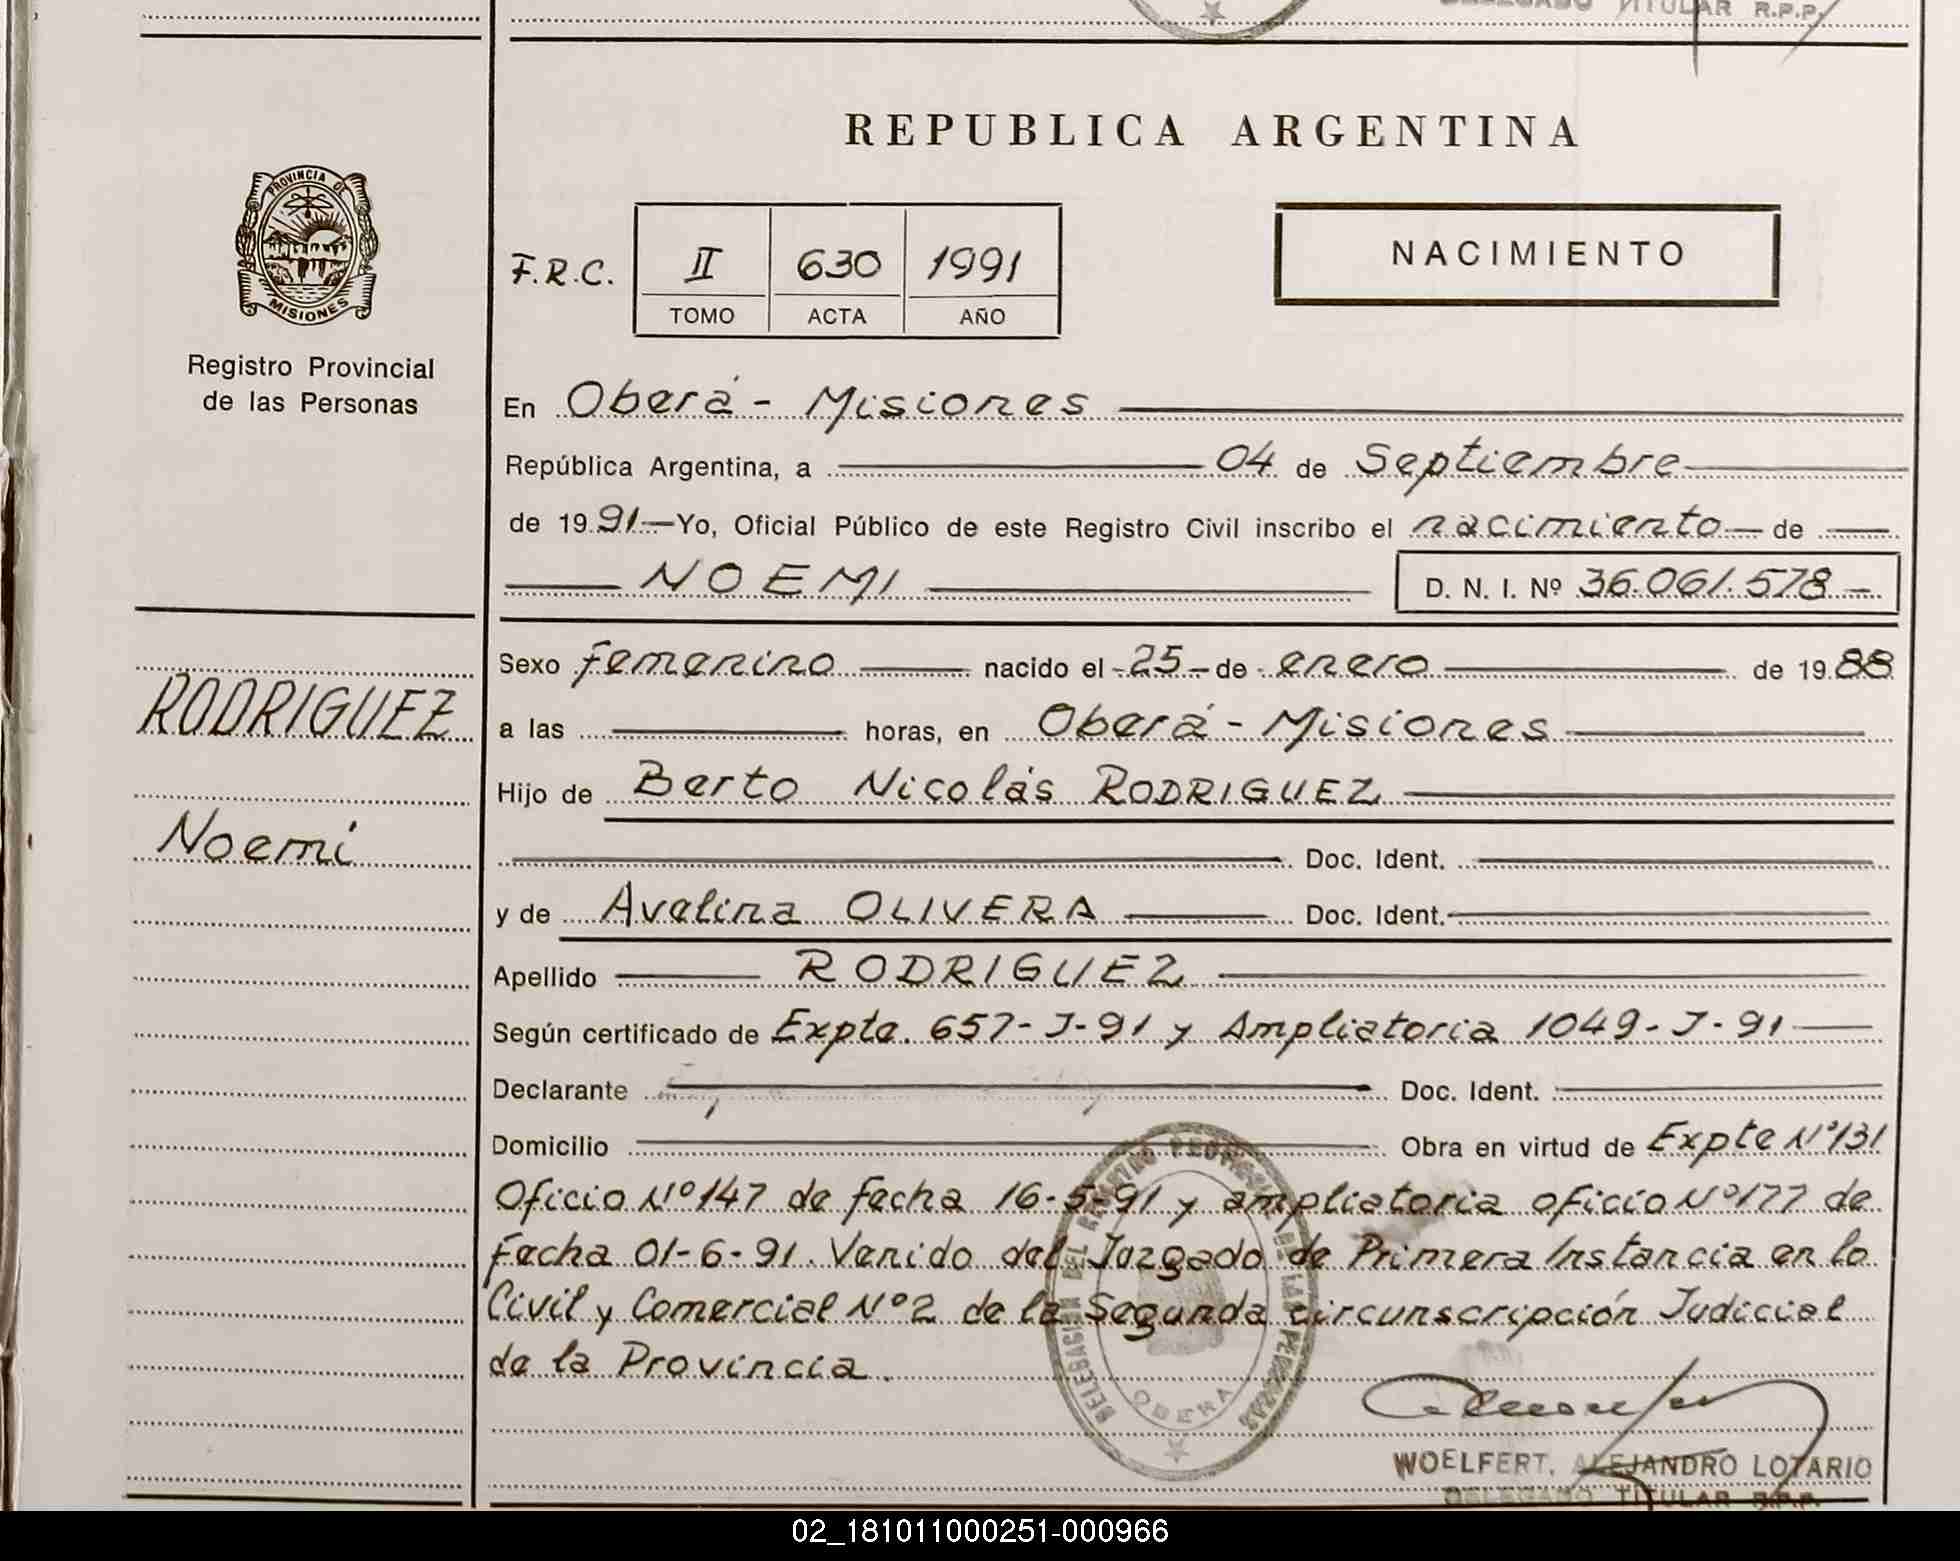 DELEGADO TITULAR R.P.P.
REPUBLICA ARGENTINA
PROVINCIA DE
MISIONES
Registro Provincial
de las Personas
F.R.C. II 630 1991
TOMO ACTA AÑO
NACIMIENTO
En Oberá - Misiones
República Argentina, a 04 de Septiembre
de 1991 Yo, Oficial Público de este Registro Civil inscribo el nacimiento de
NOEMI D. N. I. Nº 36.061.578
RODRIGUEZ
Noemi
Sexo femenino nacido el 25 de enero de 1988
a las horas, en Oberá - Misiones
Hijo de Berto Nicolás RODRIGUEZ
Doc. Ident.
y de Avelina OLIVERA Doc. Ident.
Apellido RODRIGUEZ
Según certificado de Expte. 657-J-91 y Ampliatoria 1049-J-91
Declarante Doc. Ident.
Domicilio Obra en virtud de Expte Nº131
Oficio Nº147 de fecha 16-5-91 y ampliatoria oficio Nº177 de
Fecha 01-6-91. Venido del Juzgado de Primera Instancia en lo
Civil y Comercial Nº2 de la Segunda circunscripción Judicial
de la Provincia.
DELEGACION DEL REGISTRO PROVINCIAL DE LAS PERSONAS
OBERA
WOELFERT, ALEJANDRO LOTARIO
DELEGADO TITULAR R.P.P.
02_181011000251-000966